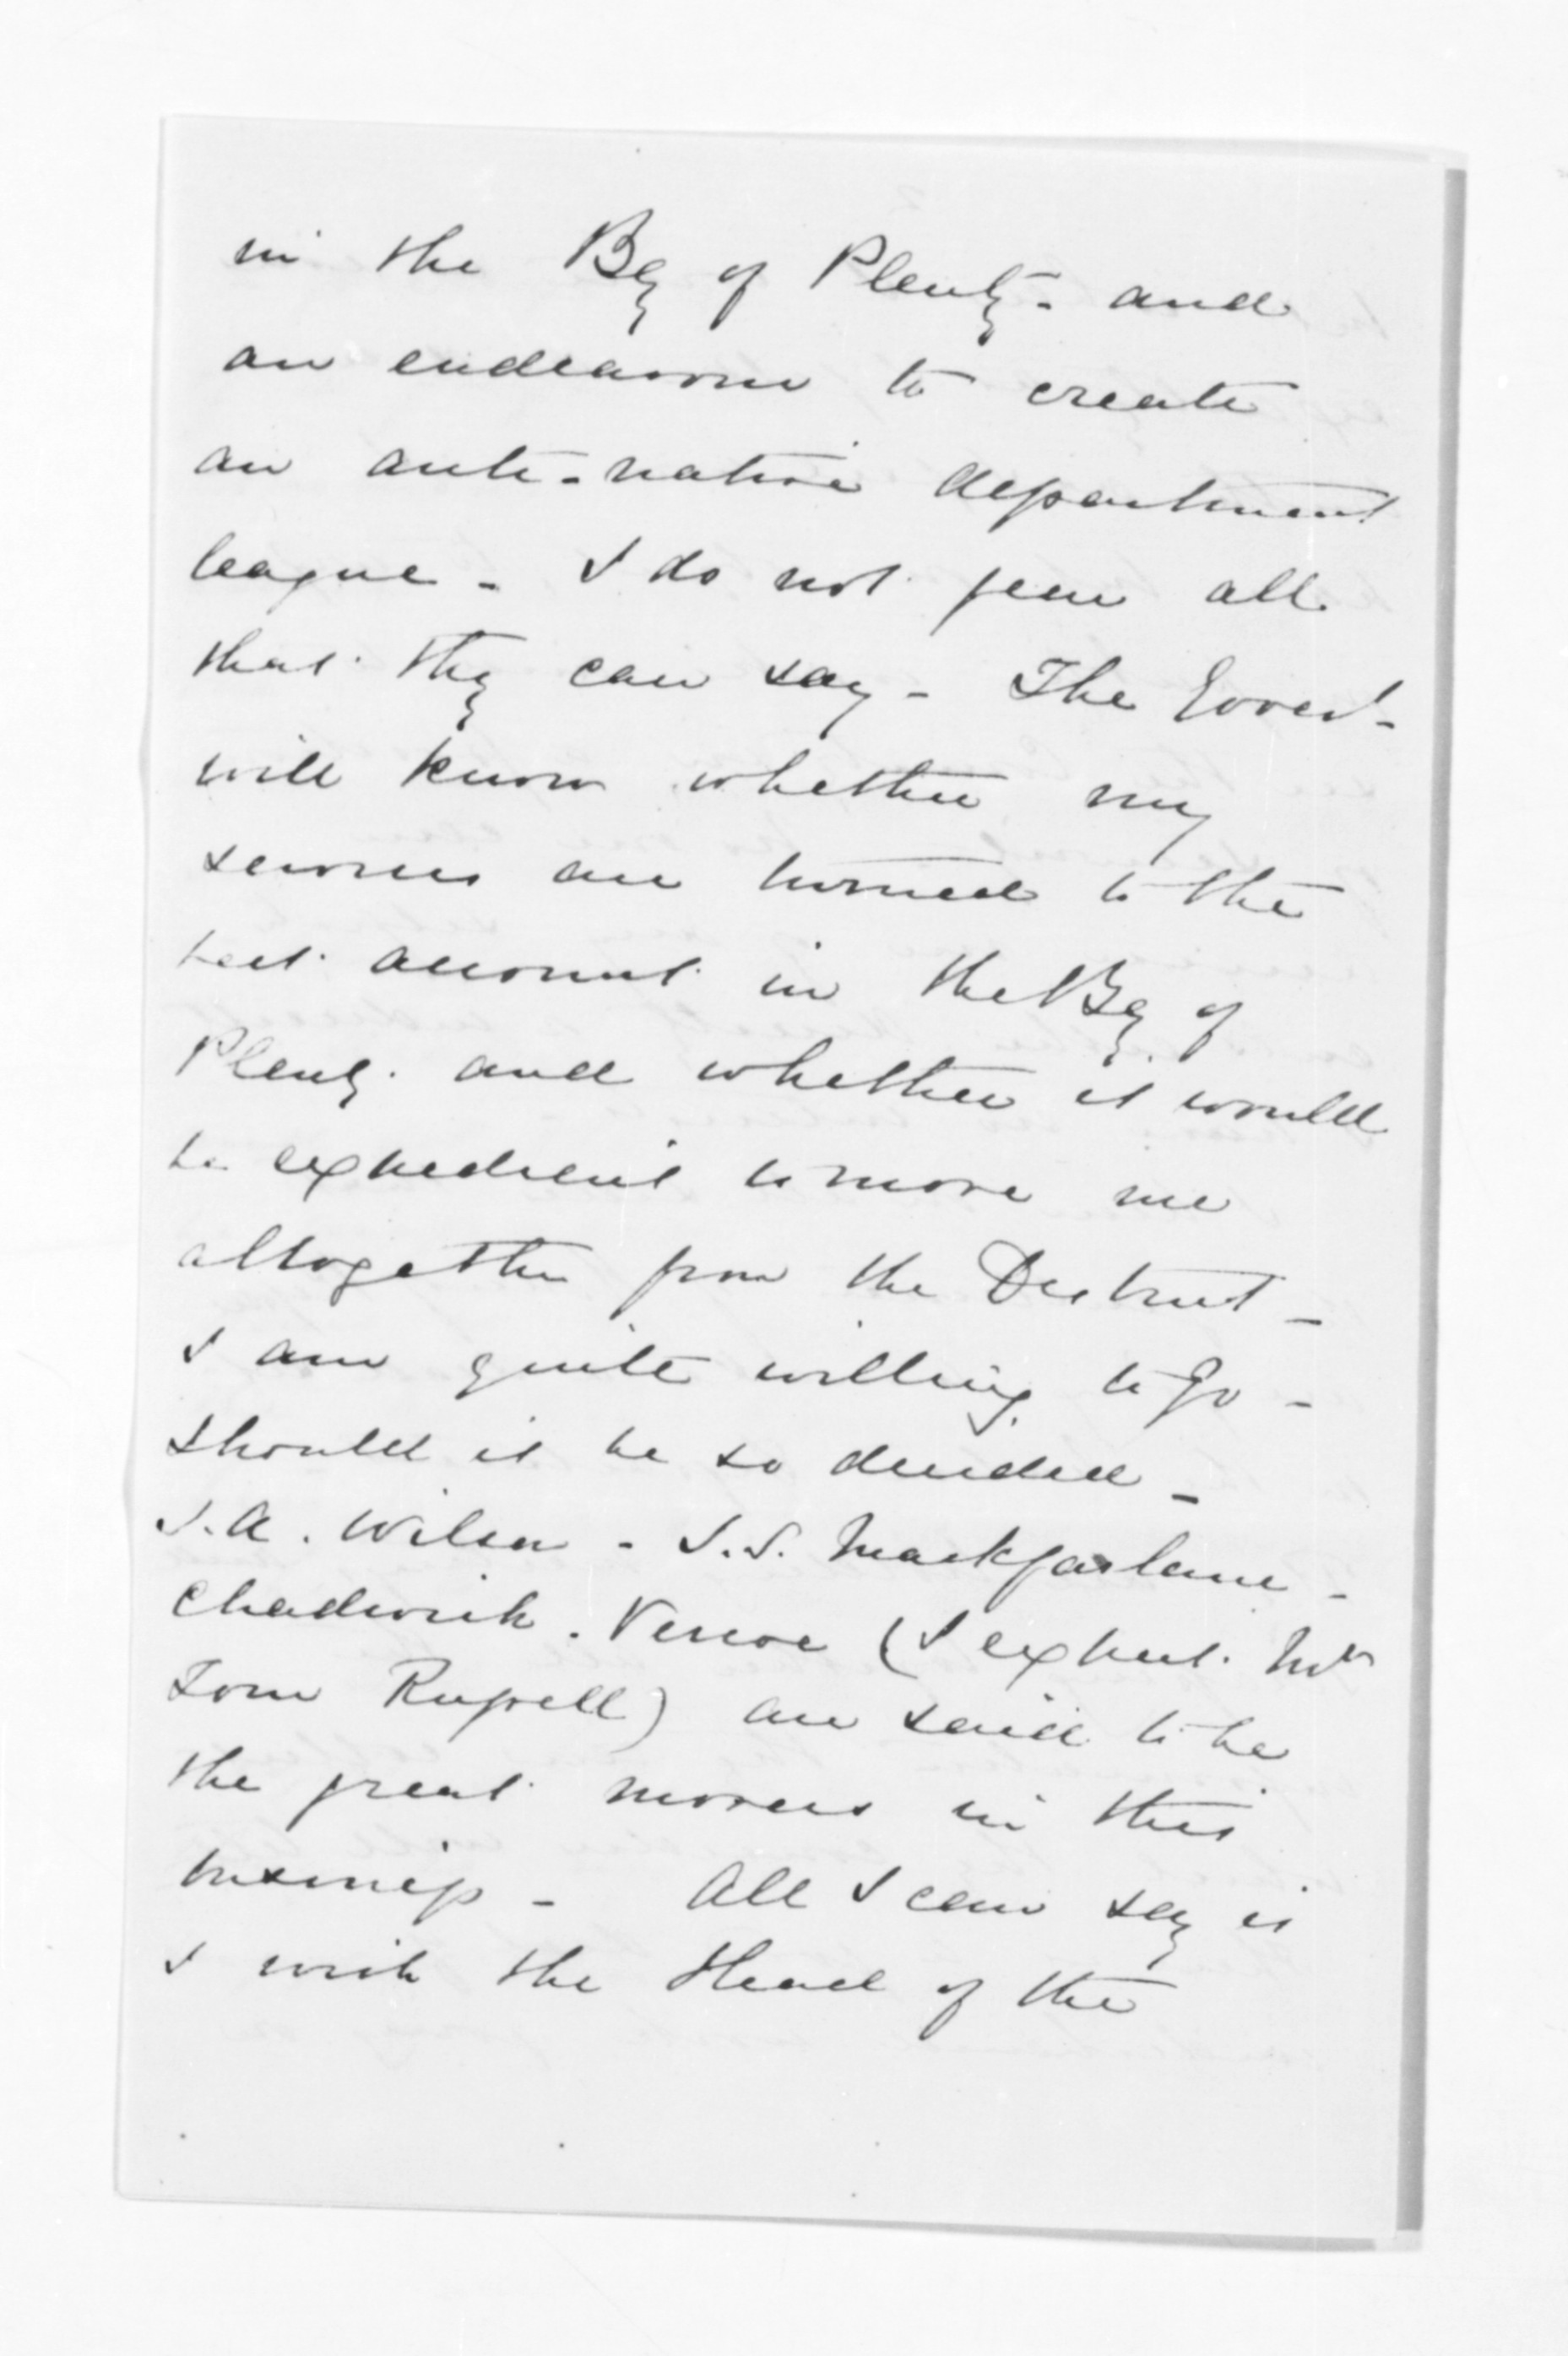 in the Bay of Plenty - and
an endeavour to create
an anti-native department
league - I do not fear all
that they can say - The Govert-
will know whether my
services are turned to the
best account in the Bay of
Plenty. and whether it would
be expedient to move me
altogether from the District -
I am quite willing to go -
should it be so decided -
J.A. Wilson - J.S. Mackfarlane -
Chadwick. Vercoe (I expect Mr
Tom Russell) are said to be
the great movers in this
business - All I can say is
I wish the Head of the